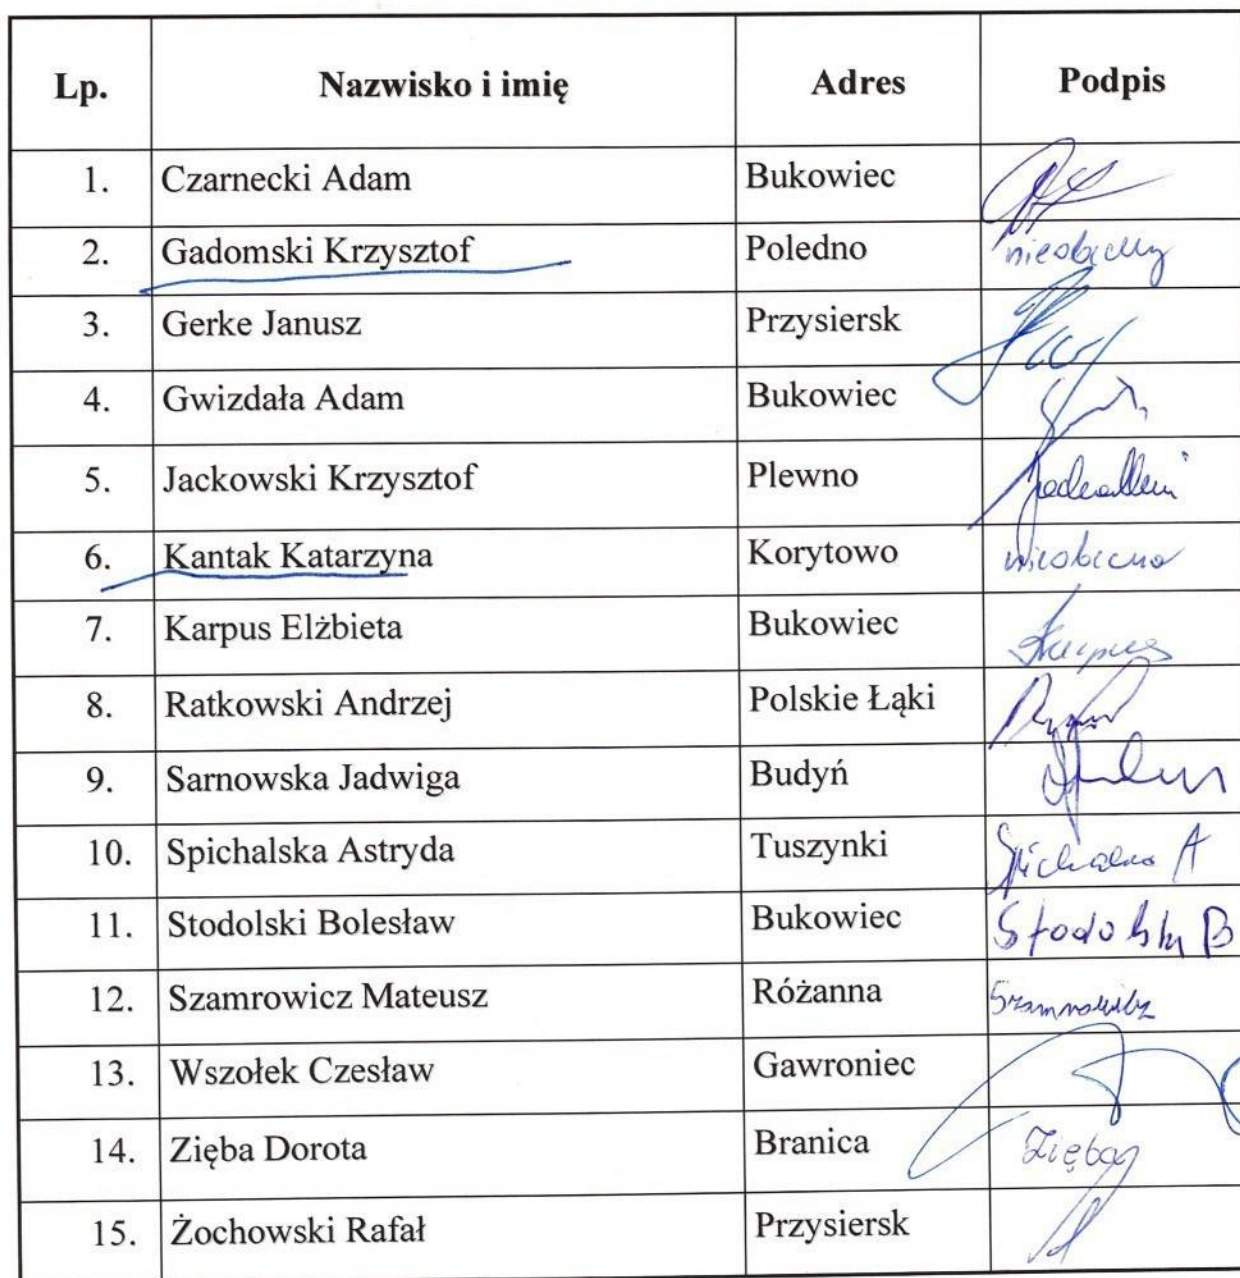 Lp. Nazwisko i imię Adres Podpis
1. Czarnecki Adam Bukowiec
2. Gadomski Krzysztof Poledno nieobecny
3. Gerke Janusz Przysiersk
4. Gwizdała Adam Bukowiec
5. Jackowski Krzysztof Plewno
6. Kantak Katarzyna Korytowo nieobecna
7. Karpus Elżbieta Bukowiec Karpus
8. Ratkowski Andrzej Polskie Łąki
9. Sarnowska Jadwiga Budyń
10. Spichalska Astryda Tuszynki
11. Stodolski Bolesław Bukowiec Stodolski B
12. Szamrowicz Mateusz Różanna Szamrowicz
13. Wszołek Czesław Gawroniec
14. Zięba Dorota Branica Zięba
15. Żochowski Rafał Przysiersk